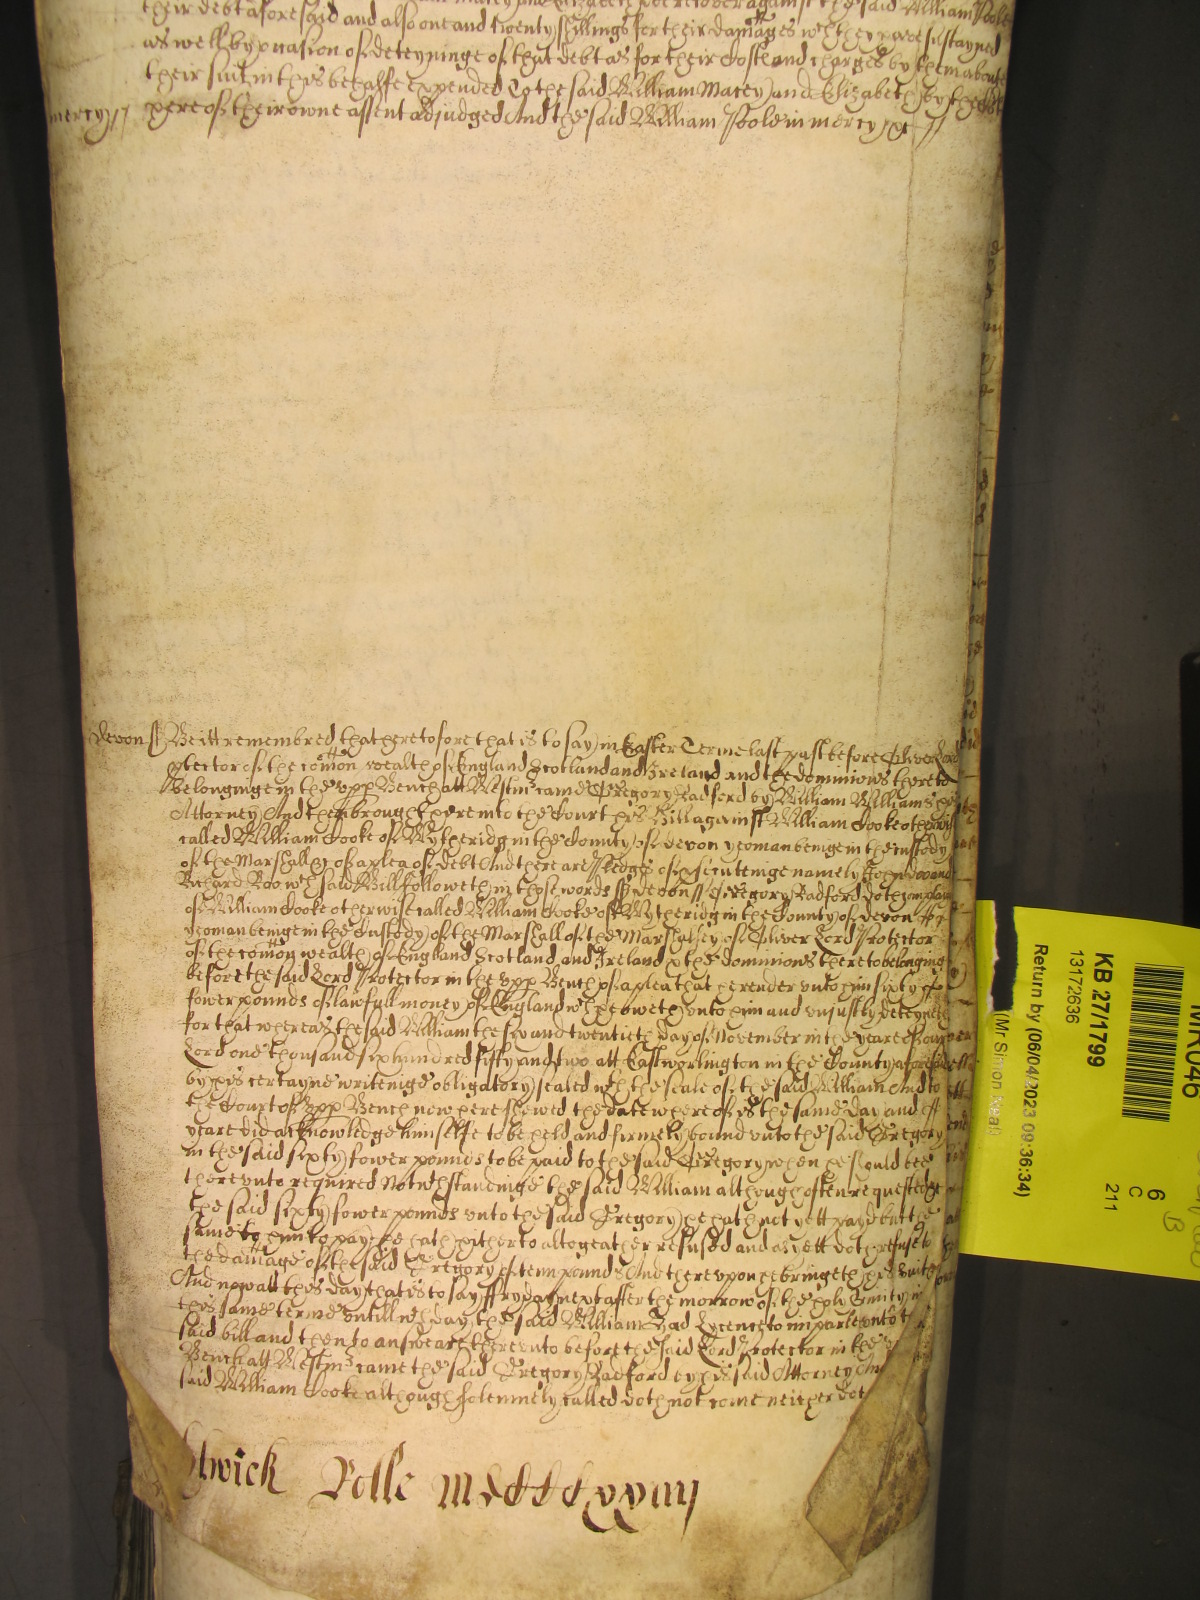 their debt aforesaid and also one and twenty shillings for their damages wch they have sustayned
as well by occasion of deteyninge of that debt as for their Costs and charges by them aboute
their suit in this behalfe expended To the said William Macey and Elizabeth by the Court
mercy // here of their owne assent adjudged And the said William Poole in mercy &c //
Devon ss Be itt remembred that heretofore that is to say in Easter Terme last past before Oliver Lord
ptector of the comon wealth of England Scotland and Ireland and the dominions thereto
belonginge in the upp Bench att Westmr came Gregory Radford by William Williams his
Attorney And then brought here into the Court his Bill against William Cooke otherwise
called William Cooke of Wytheridg in the County of devon yeoman beinge in the custody
of the Marshall &c of a plea of debt And there are Pledges of prosecuteinge namely John doo and
Richard Roo wch said Bill followeth in those words ss devon // Gregory Radford doth complaine
of William Cooke otherwise called William Cooke of Wytheridg in the County of devon
yeoman beinge in the Custody of the Marshall of the Marshalsey of Oliver Lord Protector
of the comon wealth of England Scotland and Ireland & the dominions thereto belonging
before the said Lord Protector in the upp Bench of a plea that he render unto him sixty &
fower pounds of lawfull money of England wch he oweth unto him and unjustly deteyneth
for that whereas the said William the six and twentieth day of November in the yeare of our
Lord one thousand six hundred fifty and two att East worlington in the County aforesaid
by his certayne writeinge obligatory sealed wth the seale of the said William And to
the Court of upp Bench now here shewed the date whereof is the same day and
yeare did acknowledge himselfe to be held and firmely bound unto the said Gregory
in the said sixty fower pounds to be paid to the said Gregory when he should bee
thereunto required Notwthstandinge the said William although often requested &c
the said sixty fower pounds unto the said Gregory he hath not yett payd but the
same to him to pay he hath hitherto altogeather refused and as yett doth refuse to
the damage of the said Gregory of tenn pounds And thereupon he bringeth his suit
And now att this day that is to say ffryday next after the morrow of the holy Trinity in
this same terme untill wch day the said William had Lycence to imparle unto
said bill and then to answeare thereunto before the said Lord Protector in the
Bench att Westmr came the said Gregory Radford by his said Attorney And
said William Cooke although solemnely called doth not come neither
Rolle
KB 27/1799
13172636
Return by (06/04/2023 09:36:34)
(Mr Simon Neal)
6
C
211
B